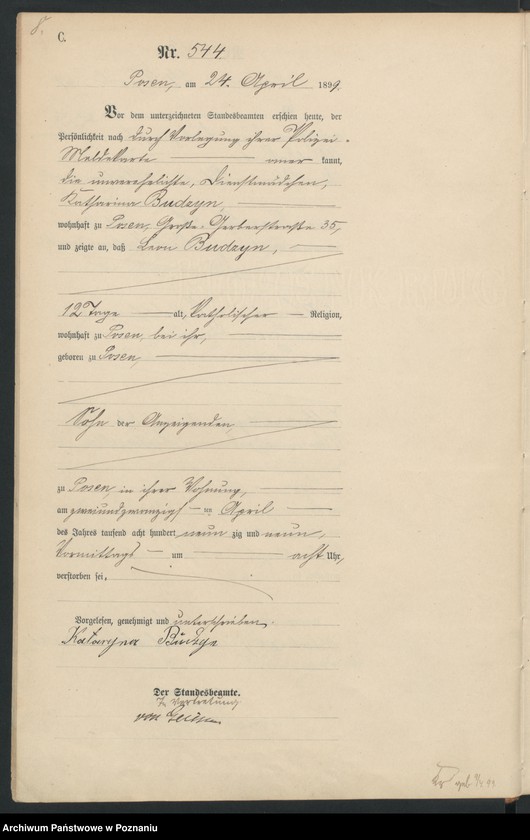 8.
C.
Nr. 544
Posen, am 24. April 1899
Vor dem unterzeichneten Standesbeamten erschien heute, der
Persönlichkeit nach durch Vorlegung ihrer Polizei-
Meldekarte anerkannt,
die unverehelichte, Dienstmädchen,
Katharina Budzyn,
wohnhaft zu Posen, Große-Gerberstraße 35,
und zeigte an, daß Leon Budzyn,
12 Tage alt, katholischer Religion,
wohnhaft zu Posen, bei ihr,
geboren zu Posen,
Sohn der Anzeigenden,
zu Posen, in ihrer Wohnung,
am zweiundzwanzigsten April
des Jahres tausend acht hundert neunzig und neun,
Vormittags um acht Uhr,
verstorben sei.
Vorgelesen, genehmigt und unterschrieben.
Katarzyna
Der Standesbeamte.
In Vertretung
von
Archiwum Państwowe w Poznaniu